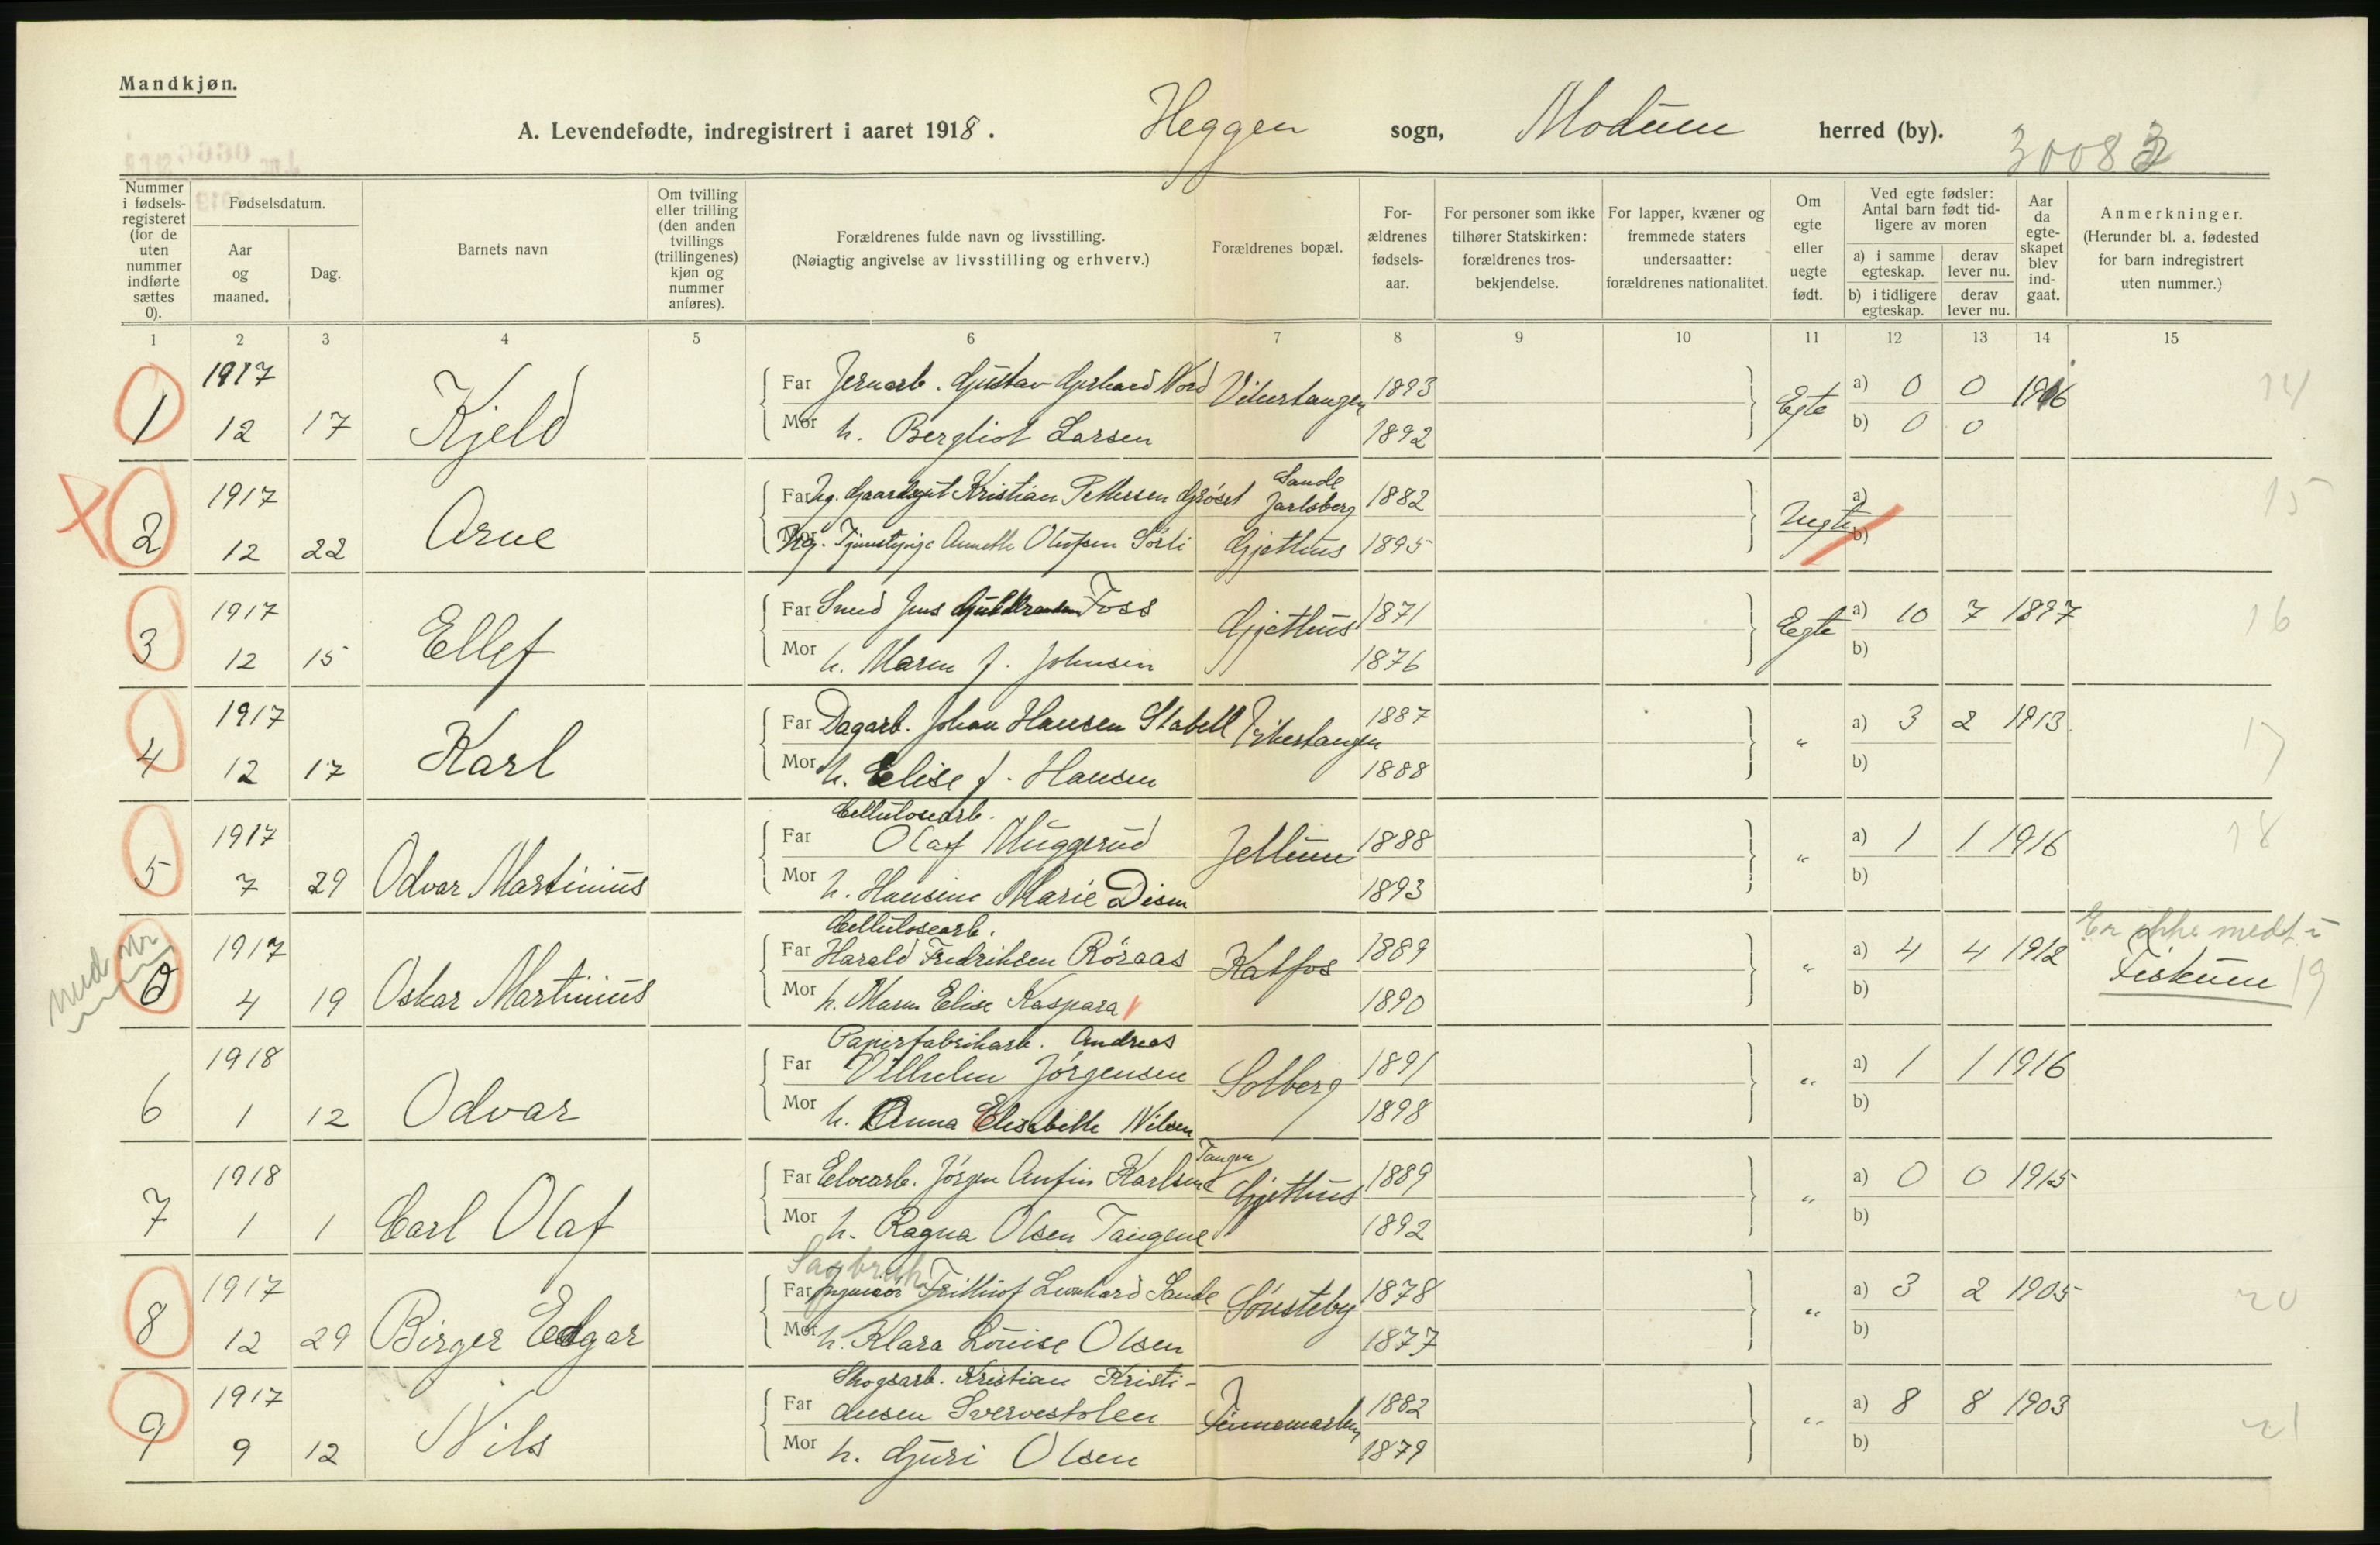 Mandkjøn.
A. Levendefødte, indregistrert i aaret 1918. Heggen sogn, Modum herred (by). 30083
Nummer i fødsels-registeret (for de uten nummer indførte sættes 0).
Fødselsdatum.
Aar og maaned.
Dag.
Barnets navn
Om tvilling eller trilling (den anden tvillings (trillingenes) kjøn og nummer anføres).
Forældrenes fulde navn og livsstilling.
(Nøiagtig angivelse av livsstilling og erhverv.)
Forældrenes bopæl.
For-ældrenes fødsels-aar.
For personer som ikke tilhører Statskirken: forældrenes tros-bekjendelse.
For lapper, kvæner og fremmede staters undersaatter: forældrenes nationalitet.
Om egte eller uegte født.
Ved egte fødsler: Antal barn født tid-ligere av moren
a) i samme egteskap. derav lever nu.
b) i tidligere egteskap. derav lever nu.
Aar da egte-skapet blev ind-gaat.
Anmerkninger.
(Herunder bl. a. fødested for barn indregistrert uten nummer.)
1 2 3 4 5 6 7 8 9 10 11 12 13 14 15
1917 Far Jernarb. Gustav Gerhard Nord Vikerstangen 1893 a) 0 0 1916 14
1 12 17 Kjeld Mor h. Bergliot Larsen 1892 Egte b) 0 0
1917 Far Ug. Gaardsgut Kristian Pettersen Grøset Sande Jarlsberg 1882 a) 15
2 12 22 Arne Mor Ug. Tjenestepige Annette Olufsen Sørli Gjethus 1895 Uegte b)
1917 Far Smed Jens Guldbrandsen Foss Gjethus 1871 Egte a) 10 7 1897 16
3 12 15 Ellef Mor h. Maren f. Johnsen 1876 b)
1917 Far Dagarb. Johan Hansen Stabell Vikerstangen 1887 " a) 3 2 1913 17
4 12 17 Karl Mor h. Elise f. Hansen 1888 b)
Cellulosearb.
1917 Far Olaf Muggerud Jellum 1888 " a) 1 1 1916 18
5 7 29 Odvar Martinius Mor h. Hansine Marie Disen 1893 b)
Cellulosearb. Er ikke medt i
med nr 1917 Far Harald Fredriksen Røraas Katfos 1889 " a) 4 4 1912 Fiskum 19
0 4 19 Oskar Martinius Mor h. Maren Elise Kaspara 1890 b)
Papirfabrikarb. Andreas
1918 Far Vilhelm Jørgensen Solberg 1891 " a) 1 1 1916
6 1 12 Odvar Mor h. Anna Elisabeth Nilsen 1898 b)
1918 Far Elvearb. Jørgen Anfin Karlsen Tangen Gjethus 1889 " a) 0 0 1915
7 1 1 Carl Olaf Mor h. Ragna Olsen Tangene 1892 b)
Sagbruk
1917 Far Ingeniør Frithiof Leonhard Sande Sønsteby 1878 " a) 3 2 1905 20
8 12 29 Birger Edgar Mor h. Klara Louise Olsen 1877 b)
Skogsarb. Kristian Kristi-
1917 Far ansen Svervestolen Finnemarken 1882 " a) 8 8 1903 21
9 9 12 Nils Mor h. Guri Olsen 1879 b)